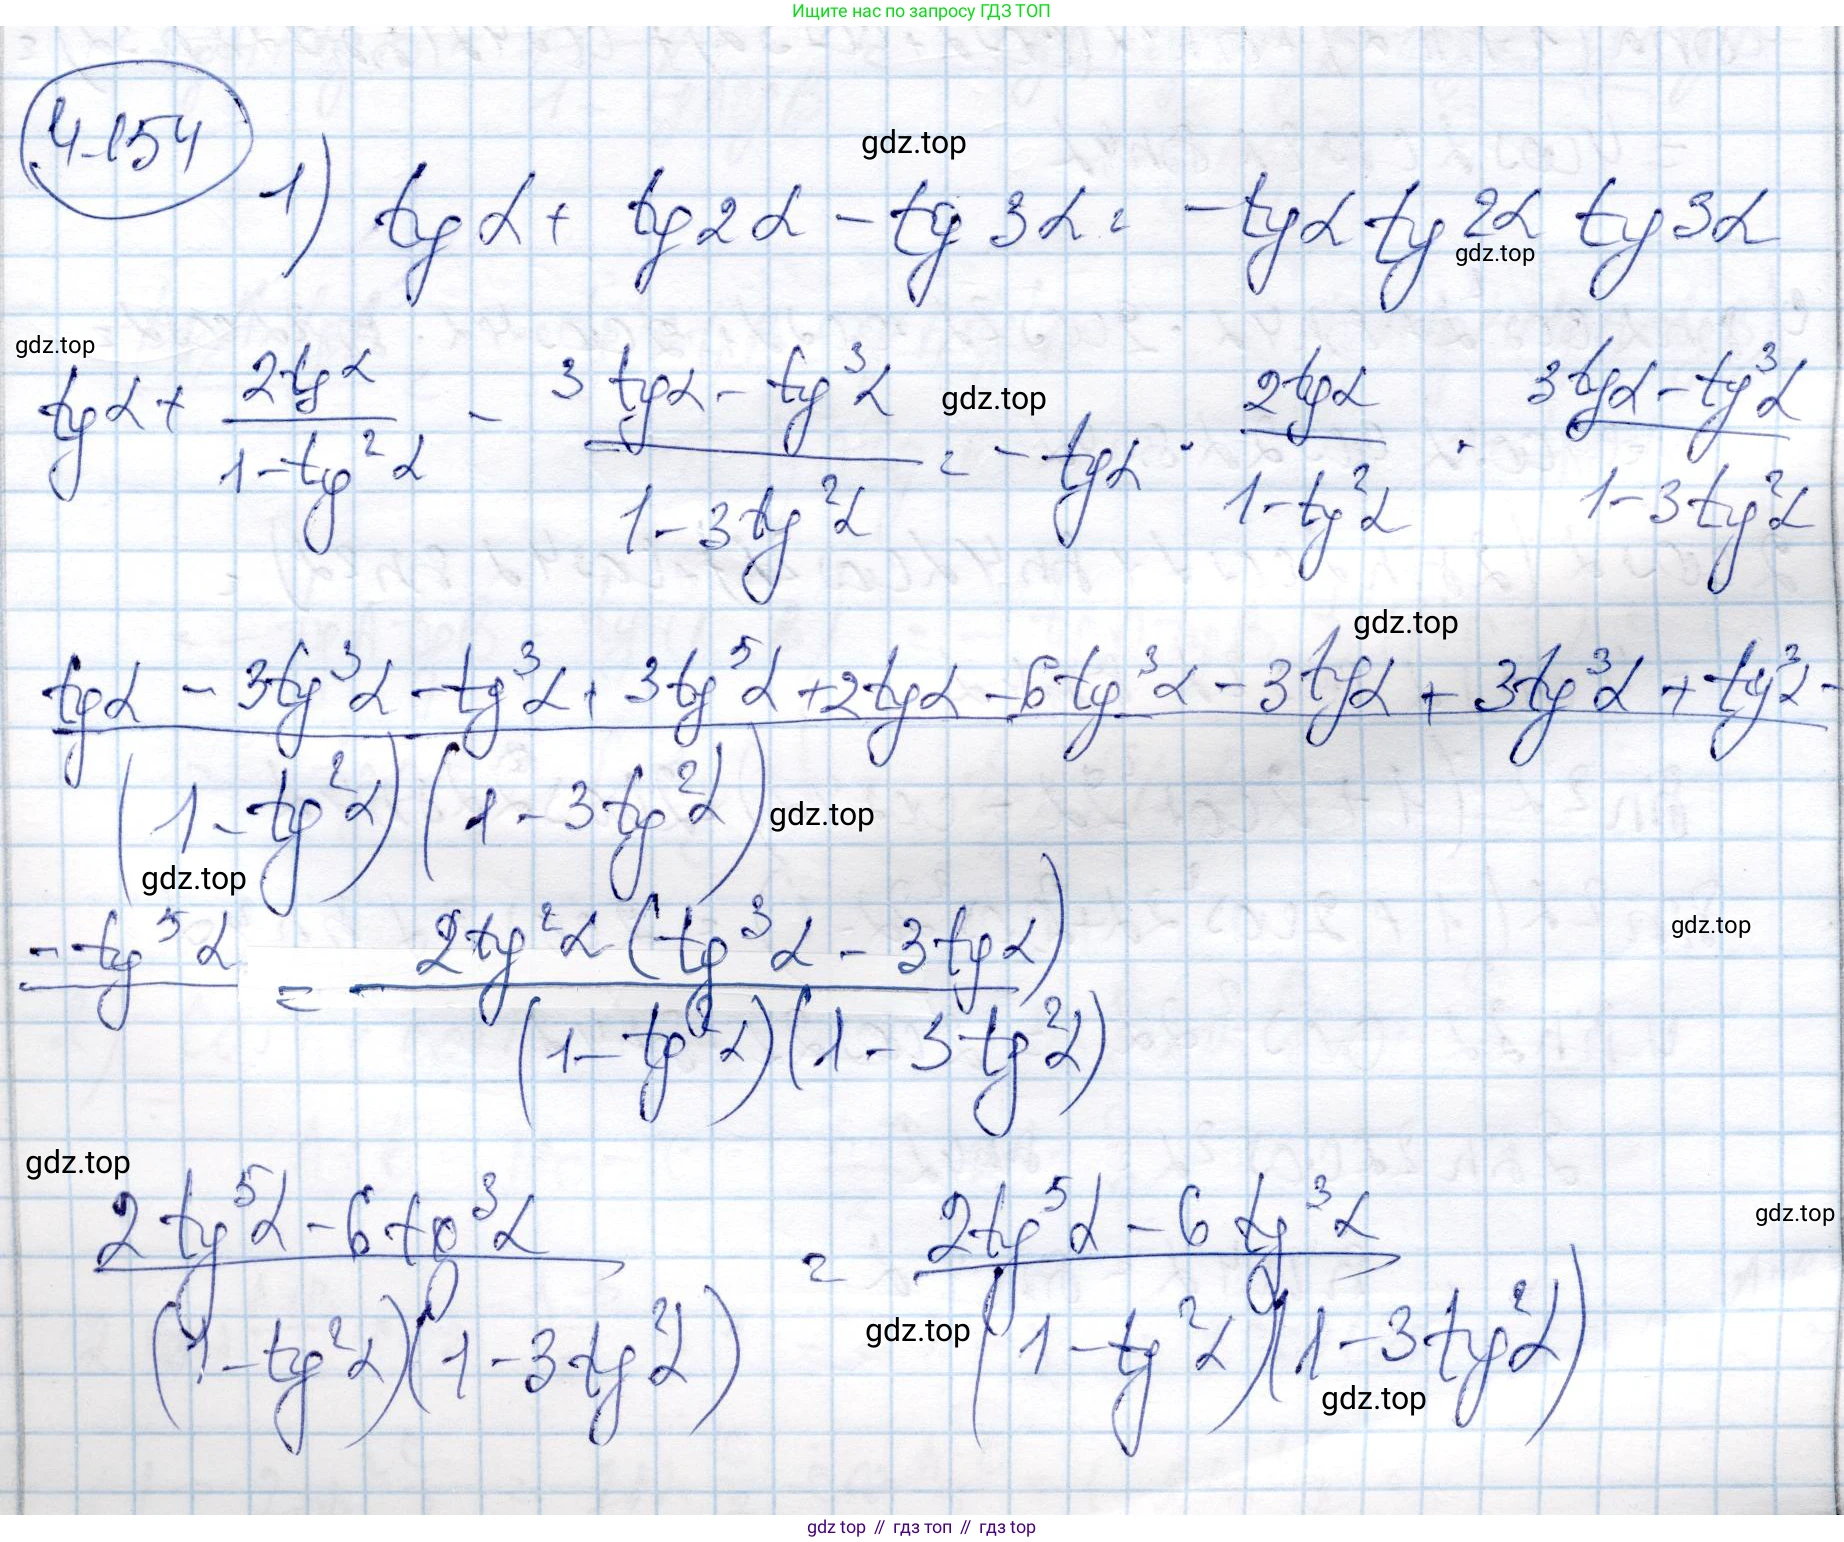 Ищите нас по запросу ГДЗ ТОП
4.154
gdz.top
1) tg α + tg 2α - tg 3α = - tg α tg 2α tg 3α
gdz.top
gdz.top
tg α + 2tg α / (1 - tg² α) - (3 tg α - tg³ α) / (1 - 3tg² α) = - tg α · 2tg α / (1 - tg² α) · (3tg α - tg³ α) / (1 - 3tg² α)
gdz.top
gdz.top
tg α - 3tg³ α - tg³ α + 3tg⁵ α + 2tg α - 6tg³ α - 3tg α + 3tg³ α + tg³ α -
(1 - tg² α)(1 - 3tg² α)
gdz.top
gdz.top
- tg⁵ α = 2tg² α (tg³ α - 3tg α) / (1 - tg² α)(1 - 3tg² α)
gdz.top
gdz.top
(2tg⁵ α - 6tg³ α) / (1 - tg² α)(1 - 3tg² α) = (2tg⁵ α - 6tg³ α) / (1 - tg² α)(1 - 3tg² α)
gdz.top
gdz.top
gdz.top
gdz top // гдз топ // гдз top